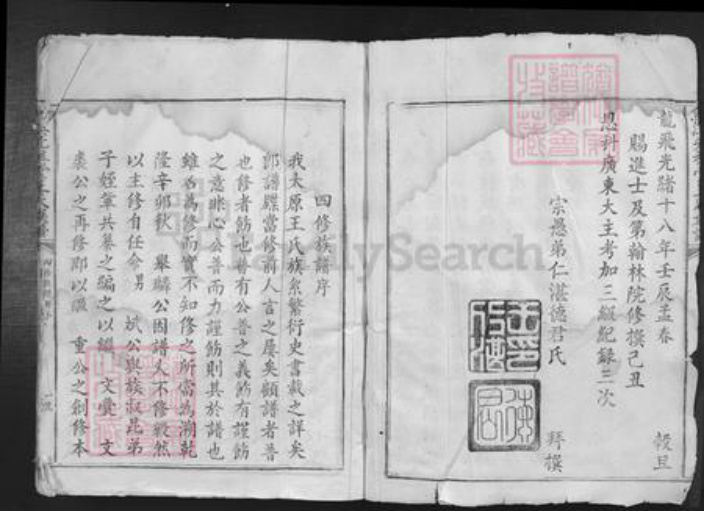 龍飛光緒十八年壬辰孟春 穀旦
賜進士及第翰林院修撰己丑
恩科廣東大主考加三級紀錄三次
宗愚弟仁湛德君氏 拜撰
四修族譜序
我太原王氏族系繁衍史書載之詳矣
即譜牒當修前人言之屢矣顧譜者普
也修者飭也普有公普之義飭有謹飭
之意非心公普而力謹飭則其於譜也
雖名為修而實不知修之所當為溯乾
隆辛卯秋 舉驎公因譜久不修毅然
以主修自任命男 斌公與族叔昆弟
子姪輩共纂之編之以繼 文彙 文
公之再修即以繼 重公之創修本
FamilySearch